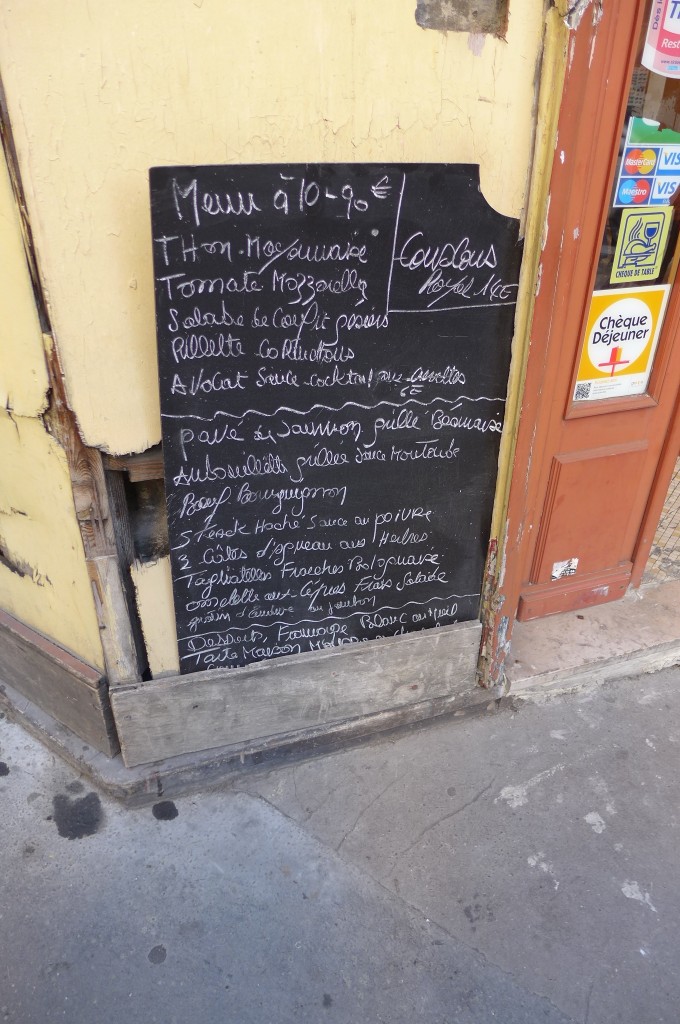 Menu à 10-90€
Thon-Mayonnaise
Tomate Mozzarella
Salade de Confit gesiers
Rillette cornichons
Avocat Sauce cocktail crevettes
Couscous
Royal 14€
pavé de Saumon grillé Béarnaise
Andouillette grillée Sauce Moutarde
Boeuf Bourguignon
Steack Haché Sauce au poivre
2 Côtes d'agneau aux Herbes
Tagliatelles Fraiches Bolognaise
omelette aux Cépes Frais Salade
gratin d'endive au jambon
Desserts Fromage Blanc au miel
Tarte Maison
MasterCard
VISA
Maestro
VIS
CHEQUE DE TABLE
Chèque
Déjeuner